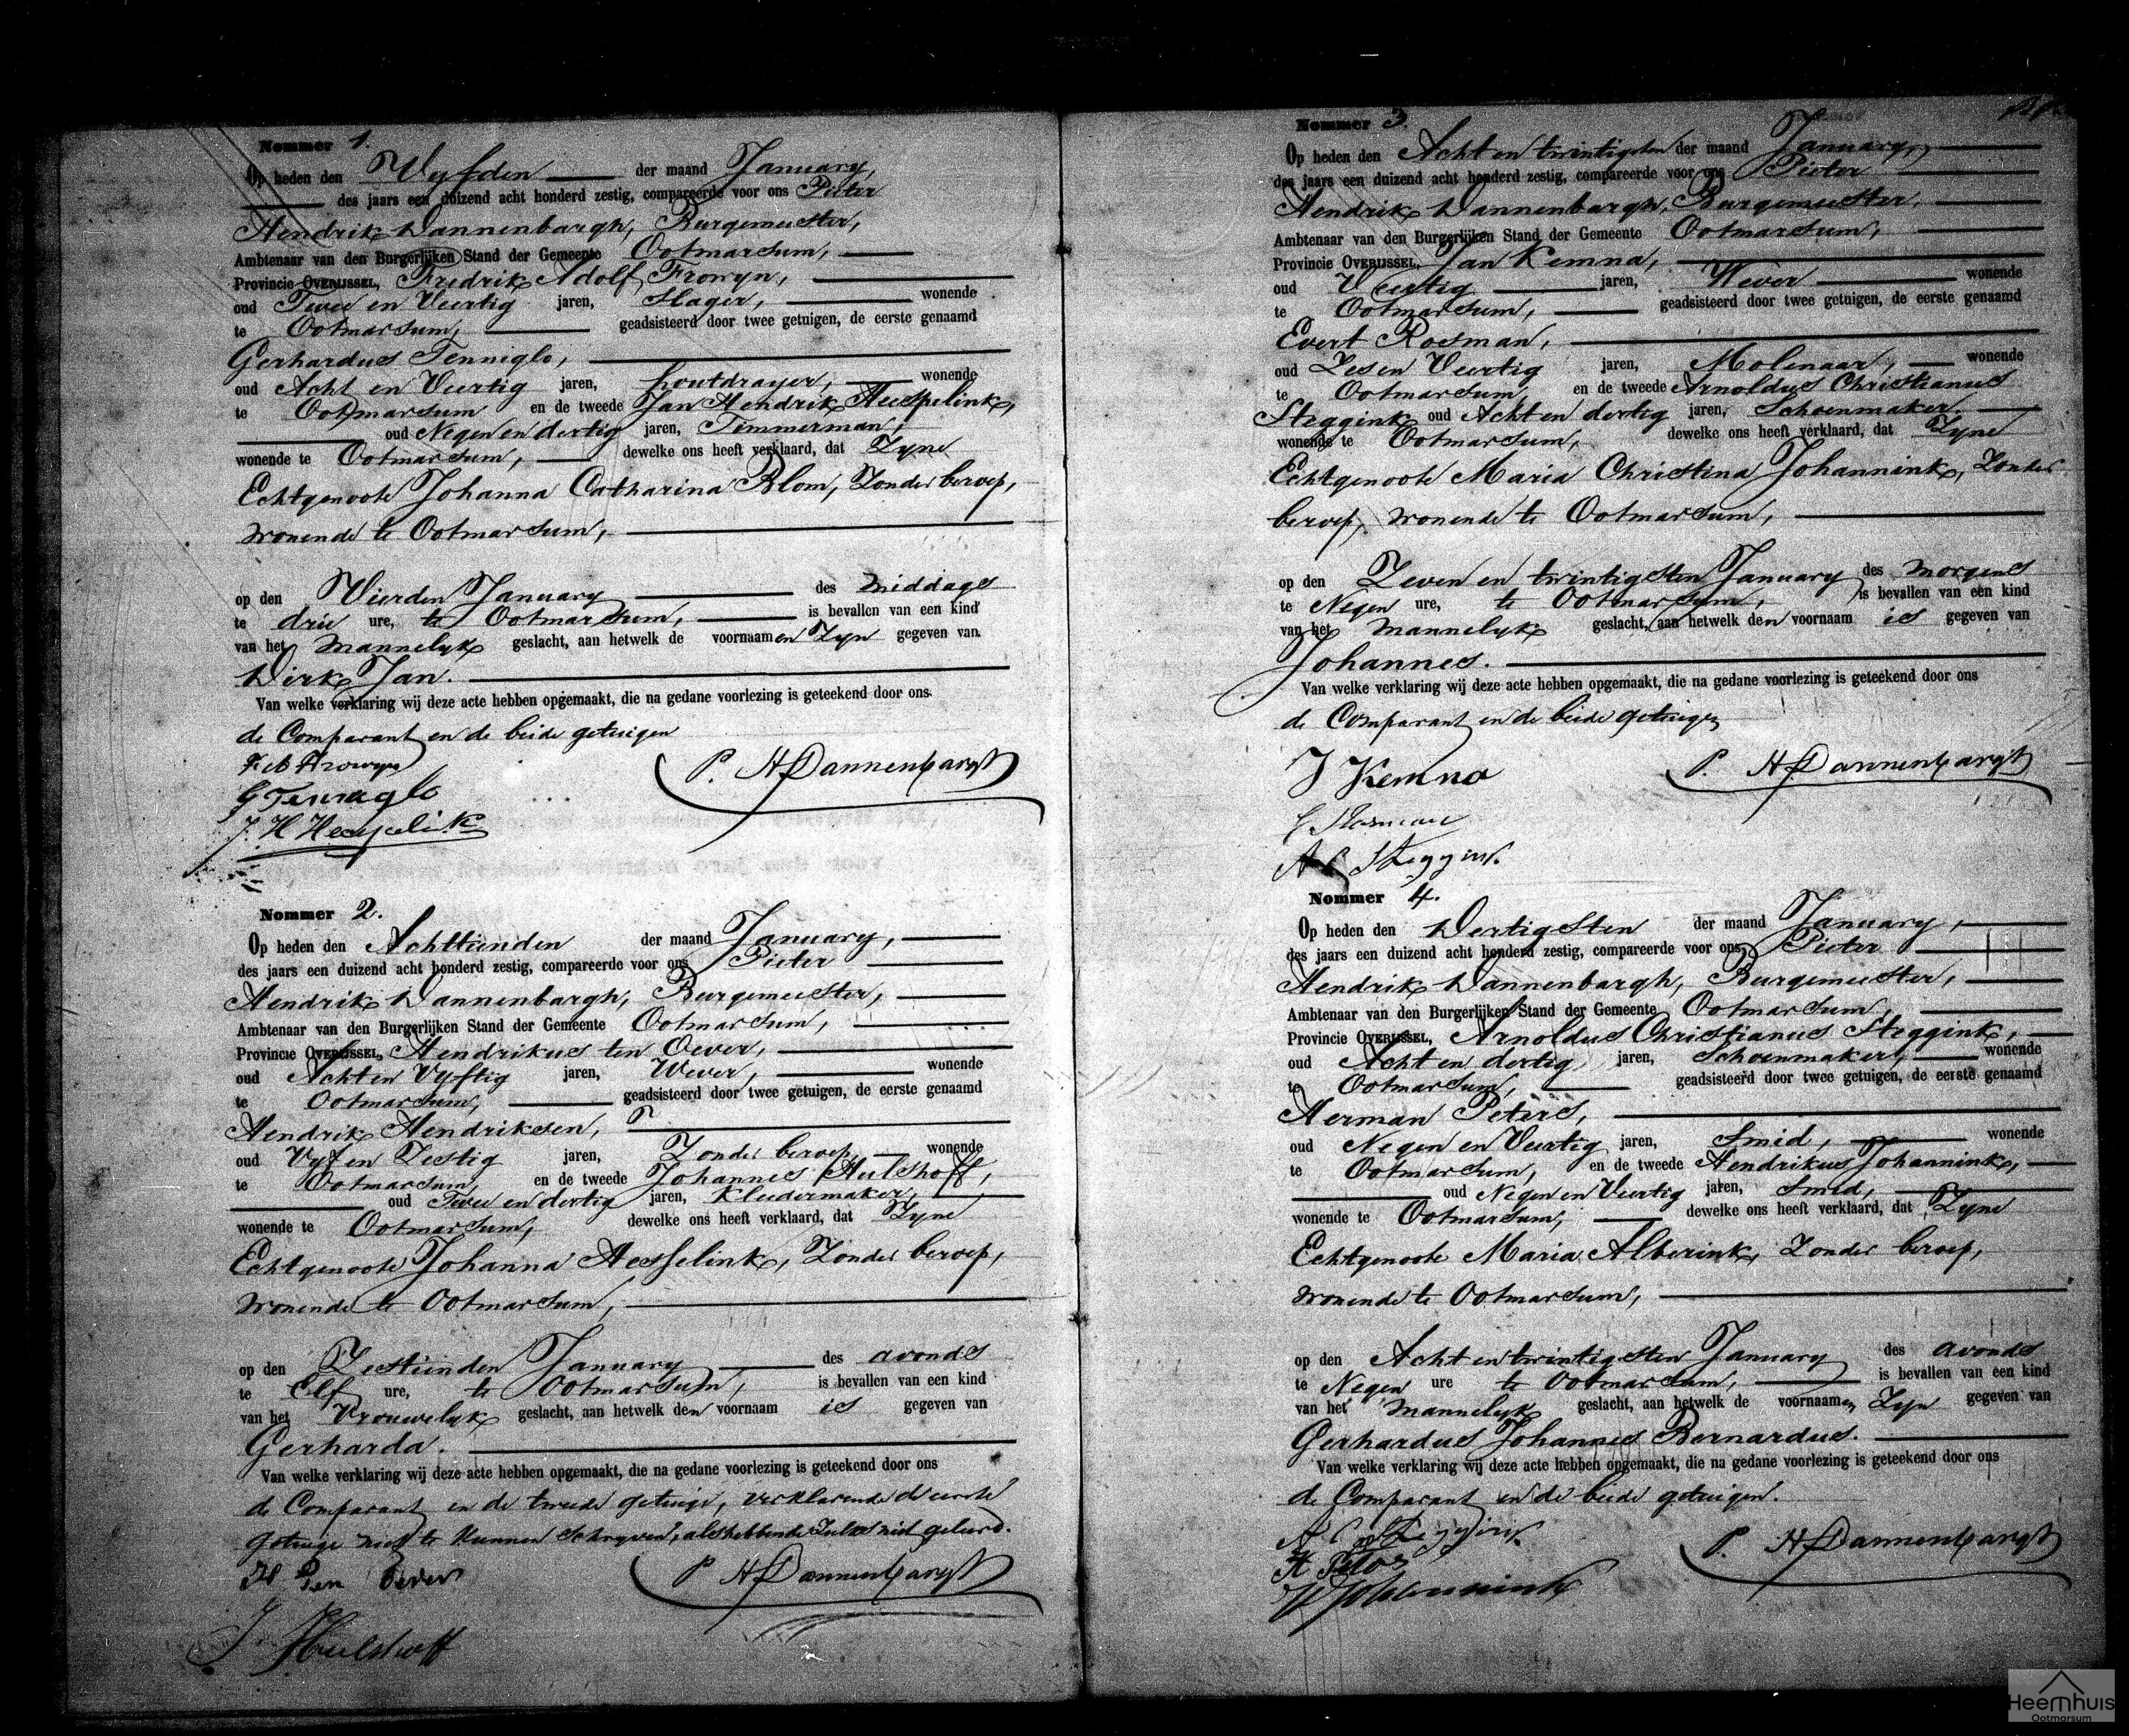 Nommer 1.
Op heden den Vyfden der maand January,
des jaars een duizend acht honderd zestig, compareerde voor ons Pieter
Hendrik Dannenbargh, Burgemeester,
Ambtenaar van den Burgerlijken Stand der Gemeente Ootmarsum,
Provincie OVERIJSSEL, Fredrik Adolf Frowyn,
oud Twee en Veertig jaren, Slager, wonende
te Ootmarsum, geadsisteerd door twee getuigen, de eerste genaamd
Gerhardus Tenniglo,
oud Acht en Veertig jaren, houtdrayer, wonende
te Ootmarsum en de tweede Jan Hendrik Heespelink,
oud Negen en dertig jaren, Timmerman,
wonende te Ootmarsum, dewelke ons heeft verklaard, dat Zyne
Echtgenoote Johanna Catharina Blom, Zonder beroep,
wonende te Ootmarsum,
op den Vierden January des middags
te drie ure, te Ootmarsum, is bevallen van een kind
van het Mannelyk geslacht, aan hetwelk de voornaamen Zyn gegeven van
Dirk Jan.
Van welke verklaring wij deze acte hebben opgemaakt, die na gedane voorlezing is geteekend door ons
de Comparant en de beide getuigen
F A Frowyn
P. H Dannenbargh
G Tenniglo
J. H Hespelink
Nommer 2.
Op heden den Achttienden der maand January,
des jaars een duizend acht honderd zestig, compareerde voor ons Pieter
Hendrik Dannenbargh, Burgemeester,
Ambtenaar van den Burgerlijken Stand der Gemeente Ootmarsum,
Provincie OVERIJSSEL, Hendrikus ten Oever,
oud Acht en Vyftig jaren, Wever, wonende
te Ootmarsum, geadsisteerd door twee getuigen, de eerste genaamd
Hendrik Hendriksen,
oud Vyf en Zestig jaren, Zonder beroep, wonende
te Ootmarsum, en de tweede Johannes Hulshoff,
oud Twee en dertig jaren, Kleedermaker,
wonende te Ootmarsum, dewelke ons heeft verklaard, dat Zyne
Echtgenoote Johanna Hesselink, Zonder beroep,
wonende te Ootmarsum,
op den Zestienden January des avonds
te Elf ure, te Ootmarsum, is bevallen van een kind
van het Vrouwelyk geslacht, aan hetwelk den voornaam is gegeven van
Gerharda.
Van welke verklaring wij deze acte hebben opgemaakt, die na gedane voorlezing is geteekend door ons
de Comparant en de tweede getuige, verklarende de eerste
getuige niet te kunnen schryven, als hebbende zulks niet geleerd.
H Ten Oever
P H Dannenbargh
J Hulshoff
Nommer 3.
Op heden den Acht en twintigsten der maand January,
des jaars een duizend acht honderd zestig, compareerde voor ons Pieter
Hendrik Dannenbargh, Burgemeester,
Ambtenaar van den Burgerlijken Stand der Gemeente Ootmarsum,
Provincie OVERIJSSEL, Jan Kemna,
oud Veertig jaren, Wever wonende
te Ootmarsum, geadsisteerd door twee getuigen, de eerste genaamd
Evert Rosman,
oud Zes en Veertig jaren, Molenaar, wonende
te Ootmarsum, en de tweede Arnoldus Christianus
Steggink oud Acht en dertig jaren, Schoenmaker,
wonende te Ootmarsum, dewelke ons heeft verklaard, dat Zyne
Echtgenoote Maria Christina Johannink, Zonder
beroep, wonende te Ootmarsum,
op den Zeven en twintigsten January des morgens
te Negen ure, te Ootmarsum, is bevallen van een kind
van het Mannelyk geslacht, aan hetwelk den voornaam is gegeven van
Johannes.
Van welke verklaring wij deze acte hebben opgemaakt, die na gedane voorlezing is geteekend door ons
de Comparant en de beide getuigen
J Kemna
P. H Dannenbargh
E Rosman
A C Steggink.
Nommer 4.
Op heden den Dertigsten der maand January,
des jaars een duizend acht honderd zestig, compareerde voor ons Pieter
Hendrik Dannenbargh, Burgemeester,
Ambtenaar van den Burgerlijken Stand der Gemeente Ootmarsum,
Provincie OVERIJSSEL, Arnoldus Christianus Steggink,
oud Acht en dertig jaren, Schoenmaker, wonende
te Ootmarsum, geadsisteerd door twee getuigen, de eerste genaamd
Herman Peters,
oud Negen en Veertig jaren, Smid, wonende
te Ootmarsum, en de tweede Hendrikus Johannink,
oud Negen en Veertig jaren, Smid,
wonende te Ootmarsum, dewelke ons heeft verklaard, dat Zyne
Echtgenoote Maria Alberink, Zonder beroep,
wonende te Ootmarsum,
op den Acht en twintigsten January des avonds
te Negen ure te Ootmarsum, is bevallen van een kind
van het Mannelyk geslacht, aan hetwelk de voornaamen Zyn gegeven van
Gerhardus Johannes Bernardus.
Van welke verklaring wij deze acte hebben opgemaakt, die na gedane voorlezing is geteekend door ons
de Comparant en de beide getuigen.
A C Steggink
P. H Dannenbargh
H Peters
H Johannink
Heemhuis
Ootmarsum